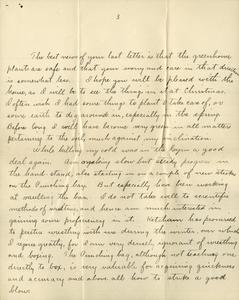 3
The best news of your last letter is that the greenhouse
plants are safe and that your worry and care in that direc
is somewhat less. I hope you will be pleased with the
house, as I will be to see the things in it at Christmas.
I often wish I had some things to plant & take care of, or
some earth to dig around in, especially in the spring.
Before long I will have become very green in all matters
pertaining to the soil, much against my inclination.
While killing my cold was in the again a good
deal again. Am making slow but steady progress in
the hand stand, also starting in on a couple of new stunts
on the Punching bag. But especially have been working
at wrestling the man. I do not take well to scientific
methods of wrestling, and hence am much interested in
gaining some proficiency in it. Ketcham has promised
to practice wrestling with me during the winter, over which
I enjoy greatly, for I am very densely ignorant of wrestling
and boxing. The Punching bag, although not teaching one
directly to box, is very valuable for acquiring quickness
and accuracy and above all how to strike a good
blow.